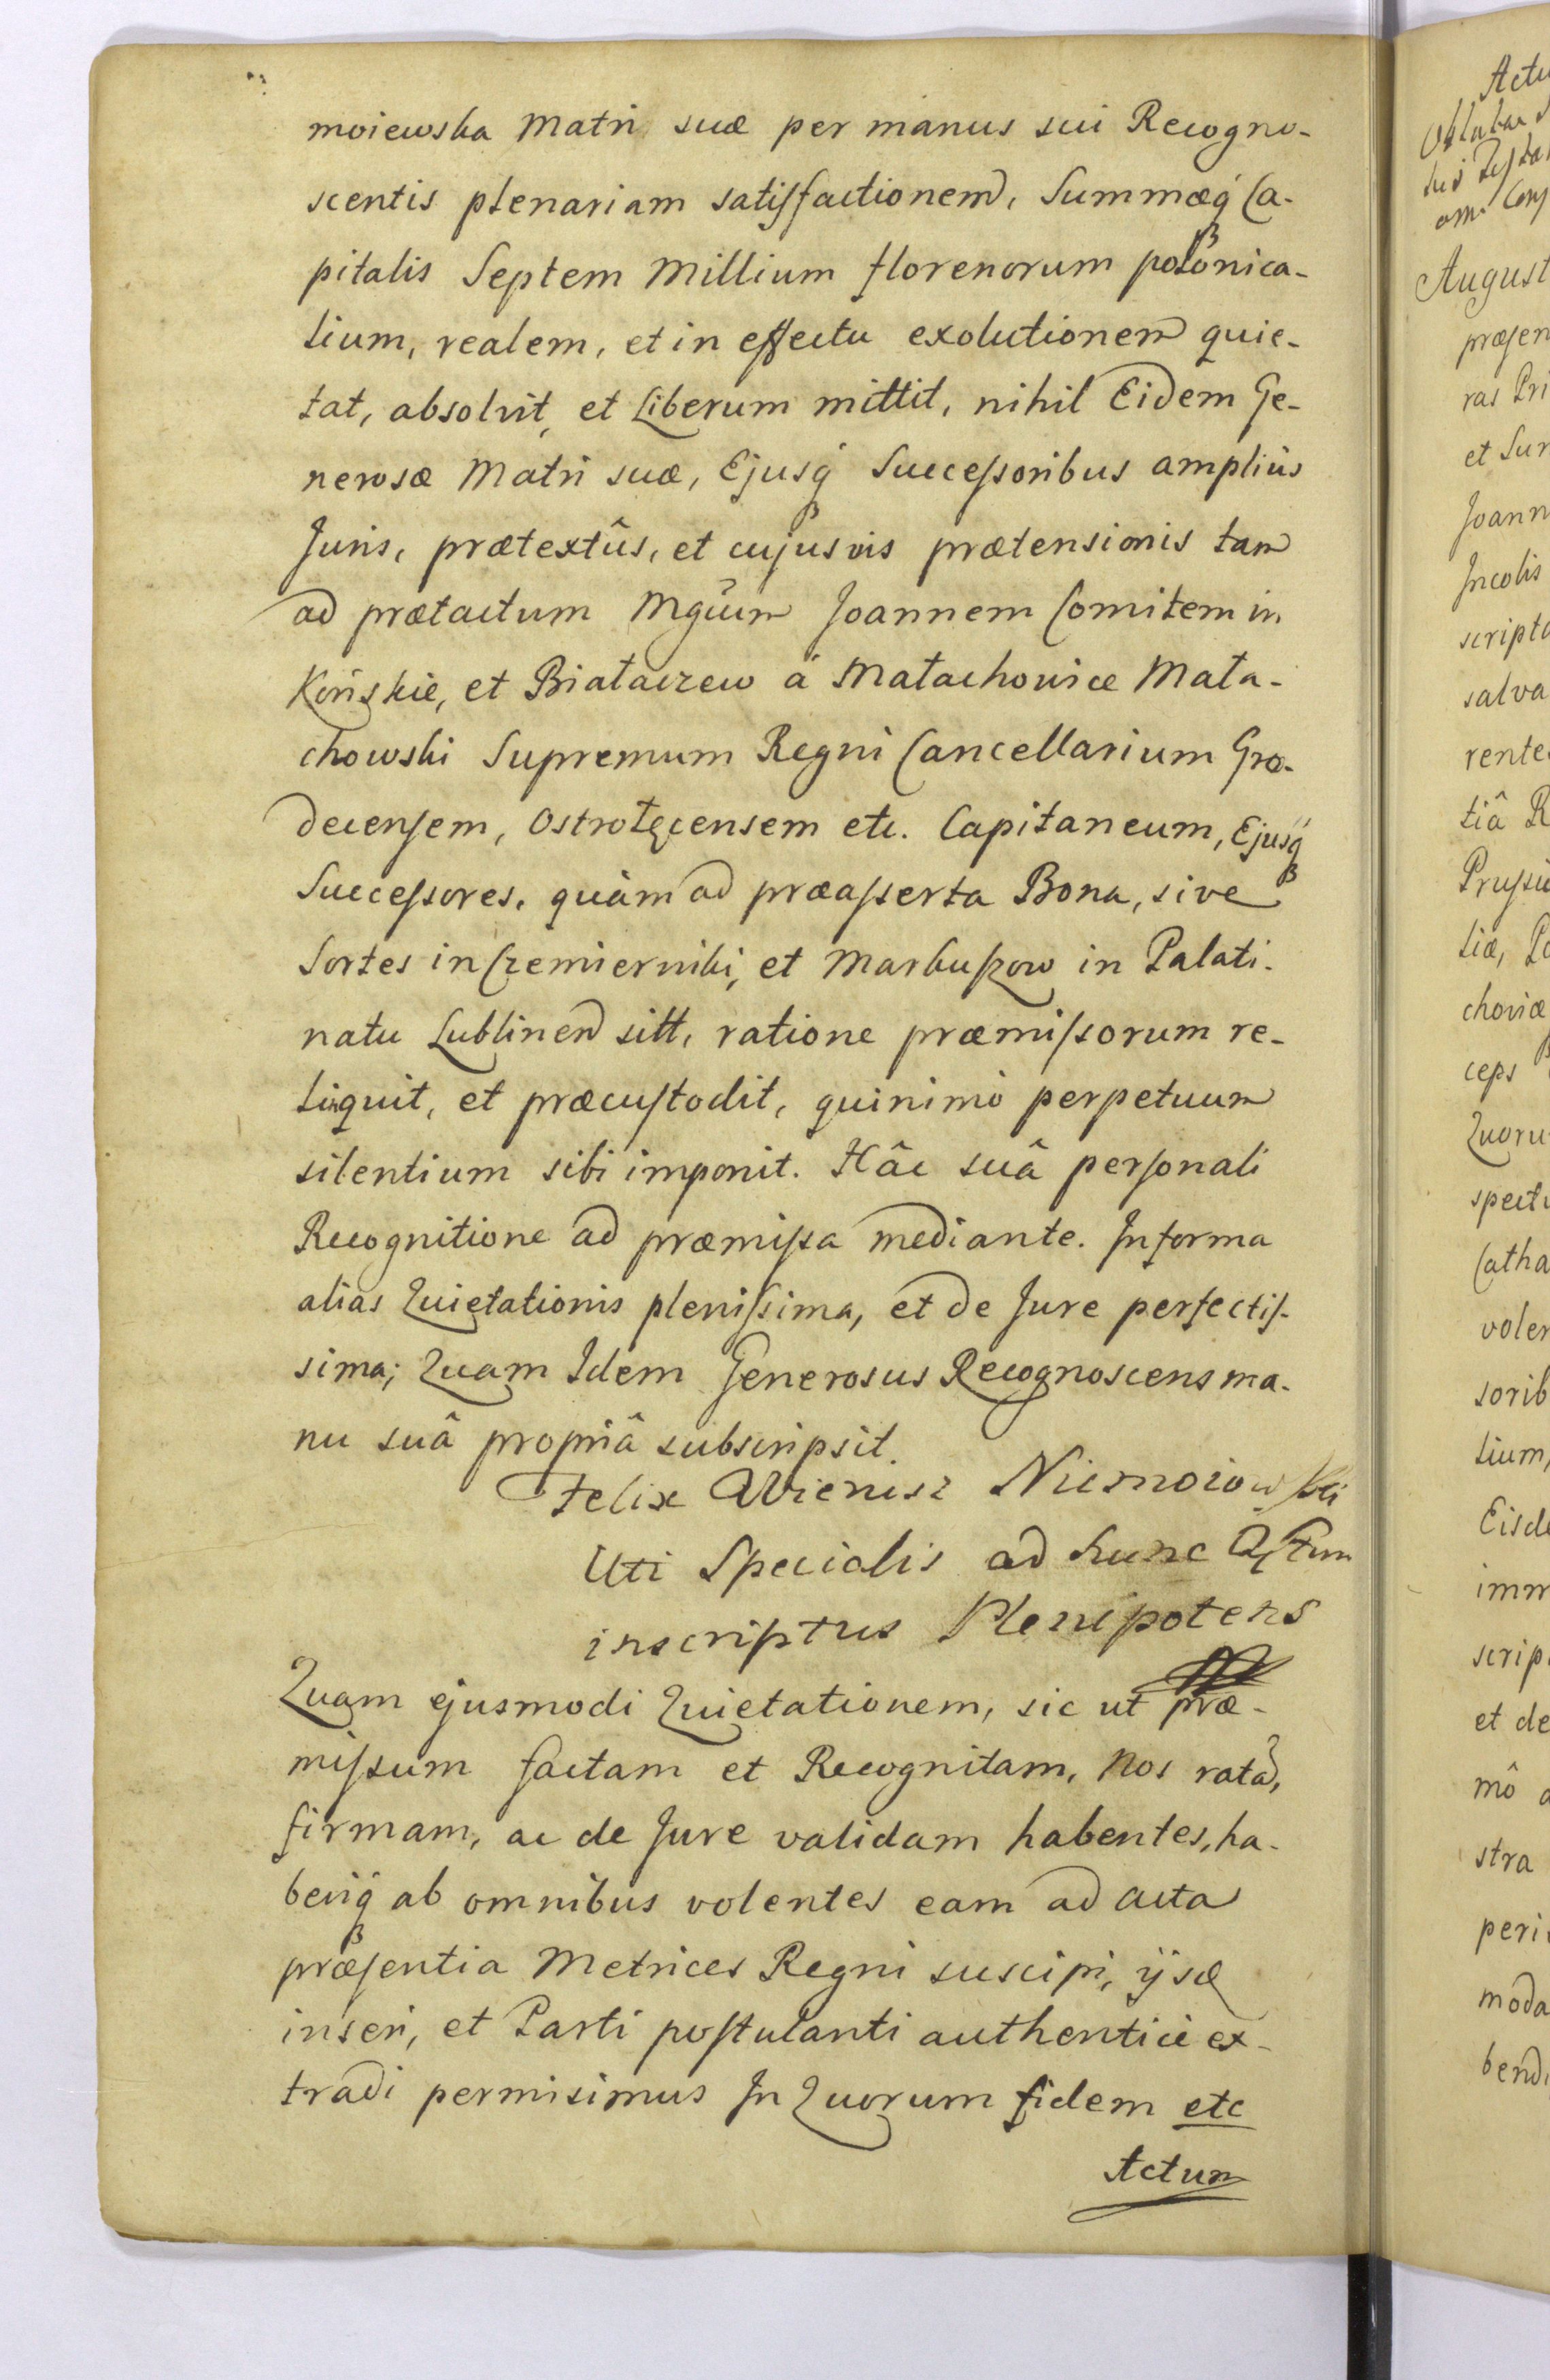 moiewska Matri suæ per manus sui Recogno-
scentis plenariam satisfactionem, Summæq́ Ca-
pitalis Septem Millium florenorum polonica-
lium, realem, et in effectu exolutionem quie-
tat, absolvit, et Liberum mittit, nihil Eidem Ge-
nerosæ Matri suæ, Ejusq́ Successoribus ampliùs
Juris, prætextûs, et cujusvis prætensionis tam
ad prætactum Mgcum Joannem Comitem in
Końskie, et Białaczew à Małachowice Mała-
chowski Supremum Regni Cancellarium Gro-
decensem, Ostrołęcensem etc. Capitaneum, Ejusq́
Successores, quàm ad præasserta Bona, sive
Sortes in Czemierniki, et Markuszow in Palati-
natu Lublinen sitt, ratione præmissorum re-
linquit, et præcustodit, quinimò perpetuum
silentium sibi imponit. Hâc suâ personali
Recognitione ad præmissa mediante. In forma
alias Quietationis plenissima, et de Jure perfectis-
sima; Quam Idem Generosus Recognoscens ma-
nu suâ propriâ subscripsit.
Felix Wienisz Niemoiowski
Uti Specialis ad hunc Actum
inscriptus Plenipotens
Quam ejusmodi Quietationem, sic ut præ-
missum factam et Recognitam, Nos ratã,
firmam, ac de Jure validam habentes, ha-
beriq́ ab omnibus volentes eam ad acta
præsentia Metrices Regni suscipi, ijsq
inseri, et Parti postulanti authenticè ex-
tradi permisimus In Quorum fidem etc
Actum
August
præsen
ras Pri
et Sur
Joann
Incolis
scripto
salva
rente
tiâ R
Prussi
liæ, Po
choviæ
ceps
Quoru
spectu
Catha
volen
sorib
lium,
Eisde
imm
scrip
et de
mô a
stra
peri
moda
bend